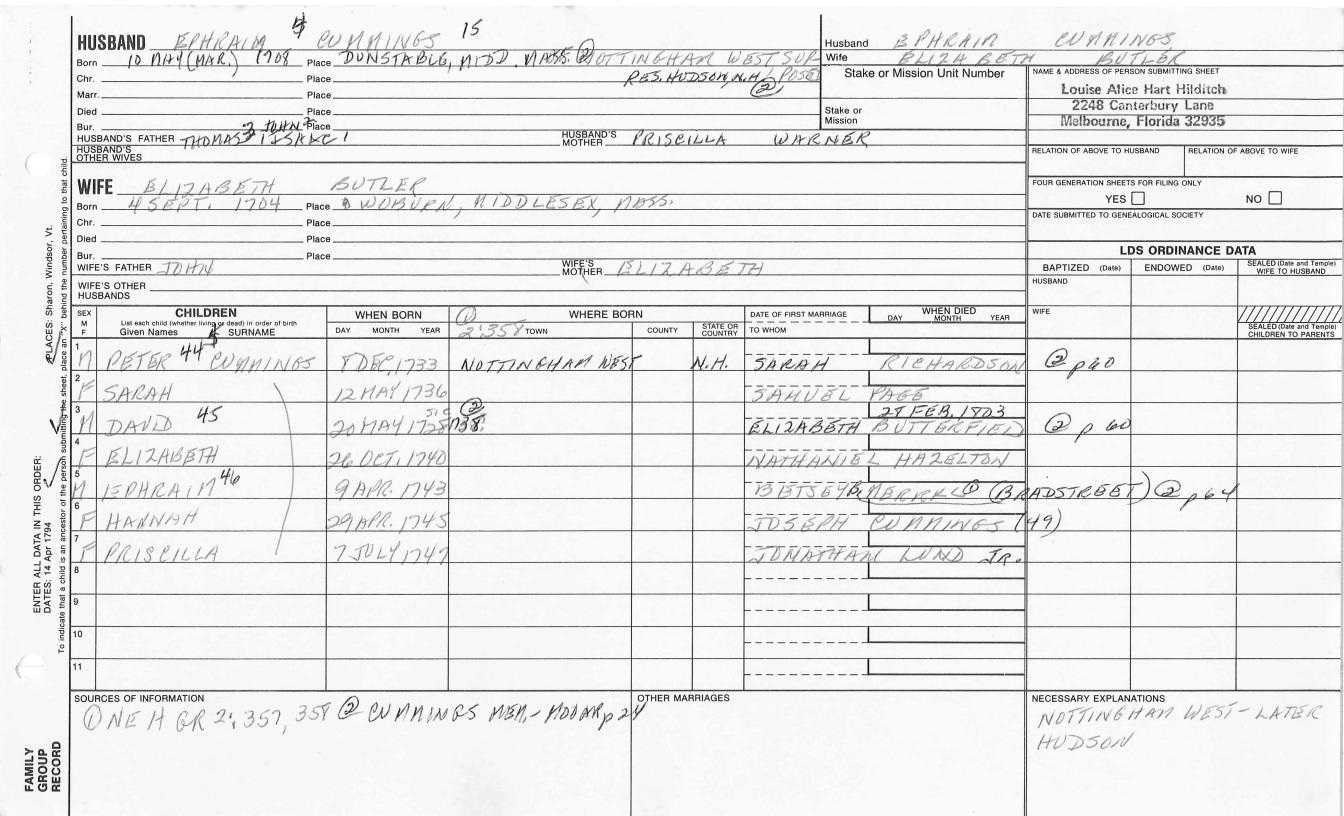 4 15
HUSBAND EPHRAIM CUMMINGS
Born 10 MAY (MAR.) 1708 Place DUNSTABLE, MIDD. MASS. ② NOTTINGHAM WEST SUP-
Chr. Place RES. HUDSON, N.H. POSED
②
Marr. Place
Died Place
Bur. Place
3 JOHN 2
HUSBAND'S FATHER THOMAS ISAAC 1 HUSBAND'S MOTHER PRISCILLA WARNER
HUSBAND'S OTHER WIVES
WIFE ELIZABETH BUTLER
Born 4 SEPT. 1704 Place WOBURN, MIDDLESEX, MASS.
Chr. Place
Died Place
Bur. Place
WIFE'S FATHER JOHN WIFE'S MOTHER ELIZABETH
WIFE'S OTHER HUSBANDS
Husband EPHRAIM CUMMINGS
Wife ELIZABETH BUTLER
Stake or Mission Unit Number
Stake or Mission
NAME & ADDRESS OF PERSON SUBMITTING SHEET
Louise Alice Hart Hilditch
2248 Canterbury Lane
Melbourne, Florida 32935
RELATION OF ABOVE TO HUSBAND RELATION OF ABOVE TO WIFE
FOUR GENERATION SHEETS FOR FILING ONLY
YES NO
DATE SUBMITTED TO GENEALOGICAL SOCIETY
LDS ORDINANCE DATA
BAPTIZED (Date) ENDOWED (Date) SEALED (Date and Temple) WIFE TO HUSBAND
HUSBAND
WIFE
SEALED (Date and Temple) CHILDREN TO PARENTS
SEX M F CHILDREN WHEN BORN WHERE BORN DATE OF FIRST MARRIAGE WHEN DIED
List each child (whether living or dead) in order of birth
Given Names SURNAME DAY MONTH YEAR ① 2:358 TOWN COUNTY STATE OR COUNTRY TO WHOM DAY MONTH YEAR
1 M PETER 44 CUMMINGS 8 DEC, 1733 NOTTINGHAM WEST N.H. SARAH RICHARDSON ② p 60
2 F SARAH 12 MAY 1736 SAMUEL PAGE
3 28 FEB. 1803
M DAVID 45 20 MAY 1728 sic ② 1738. ELIZABETH BUTTERFIELD ② p 60
4 F ELIZABETH 26 OCT. 1740 NATHANIEL HAZELTON
5 M EPHRAIM 46 9 APR. 1743 BETSEY B. MERRILL ① (BRADSTREET) ② p 64
6 F HANNAH 29 APR. 1745 JOSEPH CUMMINGS (49)
7 F PRISCILLA 7 JULY 1747 JONATHAN LUND JR.
8
9
10
11
SOURCES OF INFORMATION
① NE H GR 2:357, 358 ② CUMMINGS MEM.- p 24
OTHER MARRIAGES
NECESSARY EXPLANATIONS
NOTTINGHAM WEST - LATER
HUDSON
FAMILY GROUP RECORD
ENTER ALL DATA IN THIS ORDER:
DATES: 14 Apr 1794
PLACES: Sharon, Windsor, Vt.
To indicate that a child is an ancestor of the person submitting the sheet, place an "X" behind the number pertaining to that child.